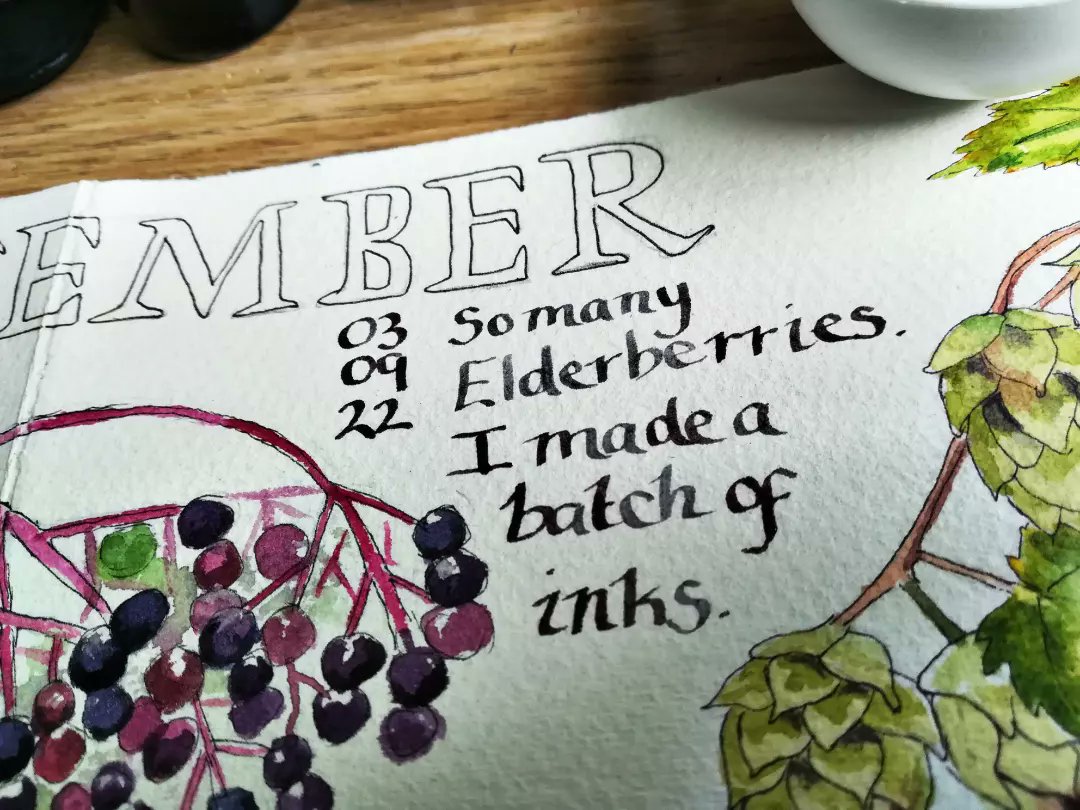 EMBER
03 So many
09 Elderberries.
22 I made a
batch of
inks.